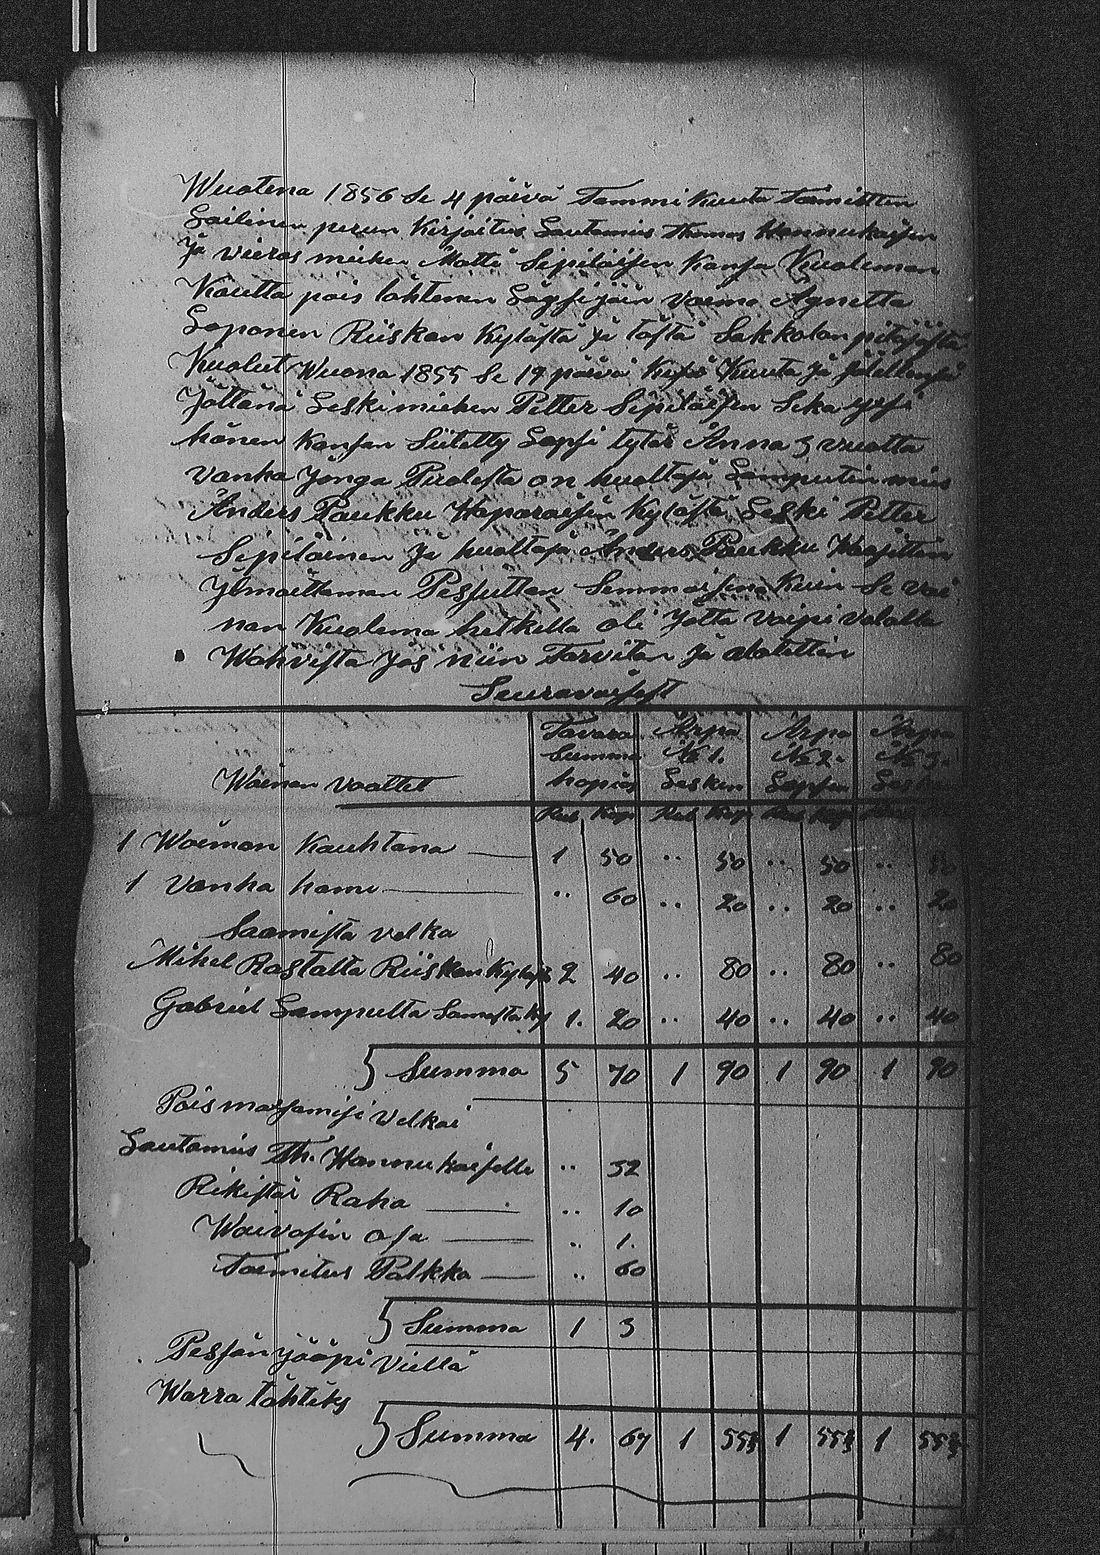 Wuotena 1856 Se 4 päivä Tammi Kuuta Toimittin
Sailinen perun Kirjoitus Lautamies Thomas Hannukaisen
Ja vieras miehen Matti Sipiläisen Kansa Kuoleman
Kautta pois lähtenen Läysijäin vaimo Agnetta
Loponen Riiskan Kylästä Ja tästä Sakkolan pitäjästä
Kuolut Wuona 1855 Se 19 päivä Kesä Kuuta Ja Jälkensä
Jättänä Leskimiehen Petter Sipiläisen Seka yxsi
hänen Kansan Siitetty Lapsi tytär Anna 3 vuotta
vanha Jonga Puolesta on huoltaja Lamputin mies
Anders Paukku Haparaisin Kylästä Leski Petter
Sipiläinen Ja huoltaja Anders Paukku Haasittin
Jlmoittaman Pesjuttan Semmoisena Kuin Se vai
nan Kuolema hetkella oli Jotta vaipi valalla
Wahvista Jos niin Tarvitan Ja alotettin
Seuravaisest
Wäinan vaattet
Tavara Summa hopias
Arpa № 1. Lesken
Arpa № 2. Lapsen
Arpa № 3. Lesken
Rub Kop Rub Kop Rub Kop
1 Woiman Kauhtana 1 50 .. 50 .. 50 .. 50
1 vanha hame .. 60 .. 20 .. 20 .. 20
Saamista velka
Mihel Rastalta Riiskan Kyläst 2 40 .. 80 .. 80 .. 80
Gabriel Lampulta Samasta Ky 1. 20 .. 40 .. 40 .. 40
Summa 5 70 1 90 1 90 1 90
Pois maxamisi velkai
Lautamies Th. Hannukaiselle .. 32
Rikistär Raha .. 10
Waivasin osa .. 1.
Toimitus Palkka .. 60
Summa 1 3
Pesjän jääpi vielä
Warra tähteks
Summa 4. 67 1 55⅔ 1 55⅔ 1 55⅔